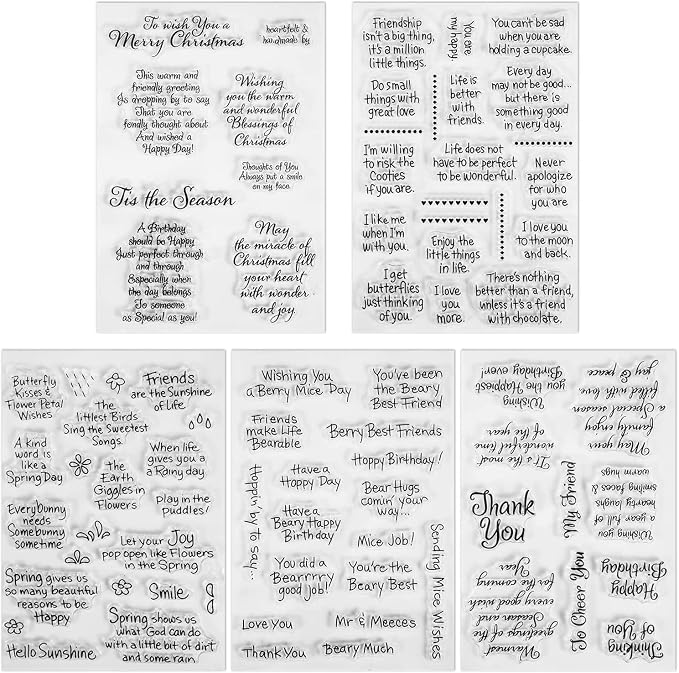 To wish You a
Merry Christmas
heartfelt &
handmade by
This warm and
friendly greeting
Is dropping by to say
That you are
fondly thought about
And wished a
Happy Day!
Wishing
you the warm
and wonderful
Blessings of
Christmas
Thoughts of You
Always put a smile
on my face.
Tis the Season
A Birthday
should be Happy
Just perfect through
and through
Especially when
the day belongs
To someone
as Special as you!
May
the miracle of
Christmas fill
your heart
with wonder
and joy.
Friendship
isn't a big thing,
it's a million
little things.
You are
my happy.
You can't be sad
when you are
holding a cupcake.
Do small
things with
great love
Life is
better
with
friends.
Every day
may not be good...
but there is
something good
in every day.
I'm willing
to risk the
Cooties
if you are.
Life does not
have to be perfect
to be wonderful.
Never
apologize
for who
you are
I like me
when I'm
with you.
Enjoy the
little things
in life.
I love you
to the moon
and back.
I get
butterflies
just thinking
of you.
I love
you
more.
There's nothing
better than a friend,
unless it's a friend
with chocolate.
Butterfly
Kisses &
Flower Petal
Wishes
Friends
are the Sunshine
of Life.
The
littlest Birds
Sing the Sweetest
Songs.
A kind
word is
like a
Spring Day
The
Earth
Giggles in
Flowers
When life
gives you a
a Rainy day
Play in the
puddles!
Everybunny
needs
Somebunny
sometime
Let your Joy
pop open like Flowers
in the Spring
Spring gives us
so many beautiful
reasons to be
Happy
Smile
Spring shows us
what God can do
with a little bit of dirt
and some rain
Hello Sunshine
Wishing You
a Berry Mice Day
You've been
the Beary
Best Friend
Friends
make Life
Bearable
Berry Best Friends
Hoppin by to say...
Have a
Happy Day
Hoppy Birthday!
Bear Hugs
comin' your
way...
Have a
Beary Happy
Birthday
Mice Job!
Sending Mice Wishes
You did a
Bearrrry
good job!
You're the
Beary Best
Love You
Mr & Meeces
Thank You
Beary Much
Wishing
you the Happiest
Birthday ever!
May your
family enjoy
a Special season
filled with love,
joy & peace.
It's the most
wonderful time
of the year
Thank
You
My Friend
Wishing you
a year full of
hearty laughs
smiling faces &
warm hugs
To Cheer You
Happy
Birthday
Warmest
greetings of the
Season and
every good wish
for the coming
Year
Thinking
of You